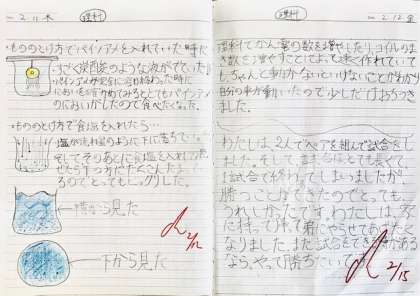 2.11 木
理科
・もののとけ方でパインアメを入れていた時に
すごく炭酸のような液がでていた。
パインアメが完全に溶け終わった時に
においを嗅がせてみるととてもパインアメ
のにおいがしたので食べたくなった。
・もののとけ方で食塩を入れたら…
塩が流れ星のように下に落ちていった。
そしてそのあとに食塩を入れて
ぜたら下の方にたくさんたまって
るのでとってもビックリした。
横から見た
下から見た
2/12
理科
2.12 金
理科でかん電の数を増やしたり、コイルのま
き数を増やすことによって速く作れていて
もしちゃんと動かないといけないことが分かり
自分の車が動いたので少しだけおちつき
ました。
わたしは、2人でペアを組んで試合をし
ました。そして、試合はとても長くて
1試合で終わってしまいましたが
勝つことができたのでとっても
うれしかったです。わたしは、
に持って帰って弟にやらせてあげたく
なりました。また試合をできる時がある
なら、やって勝ちたいで
2/15